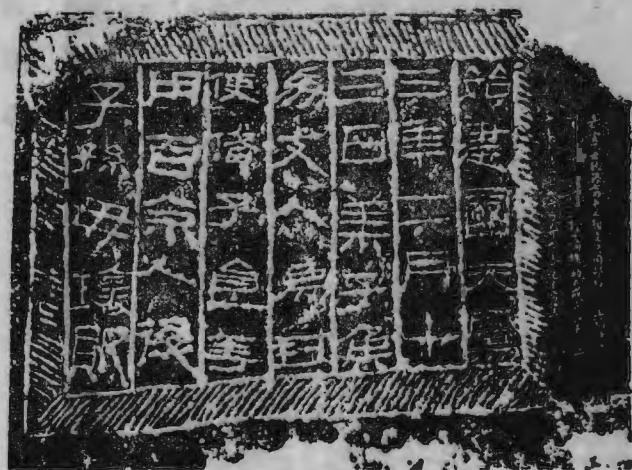 始建國天鳳
三年二月十
三日萊子侯
為支人為封
使偖子食等
用百余人後
子孫毋壞敗